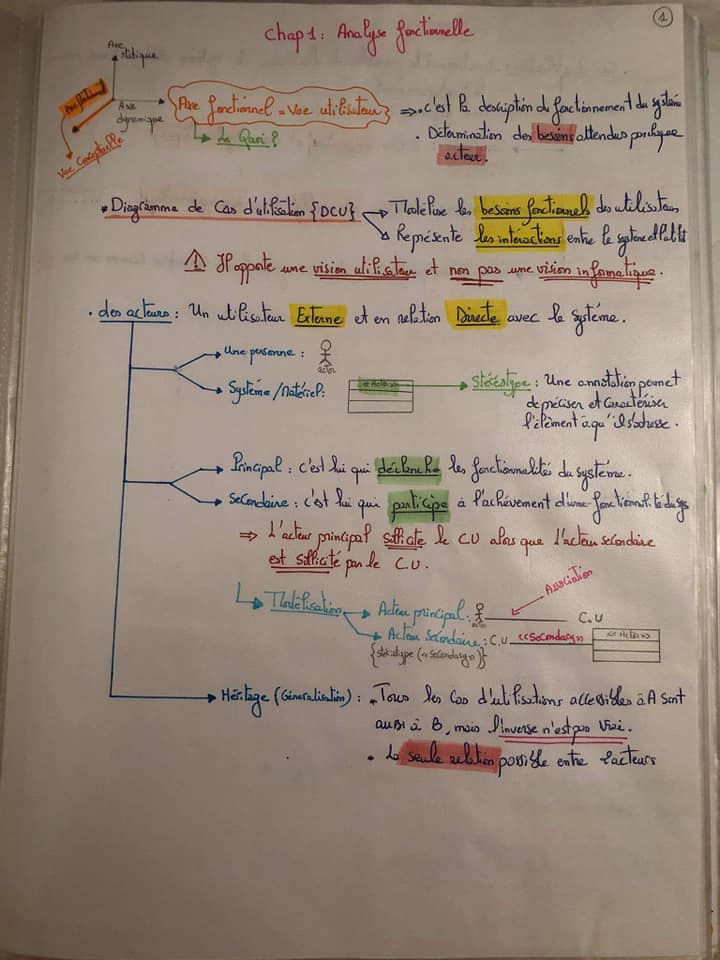 1
Chap 1: Analyse fonctionnelle
Axe statique
Axe dynamique
Axe fonctionnel
Vue conceptuelle
Axe fonctionnel = Vue utilisateur
Le Quoi ?
⇒ . C'est la description du fonctionnement du système
. Determination des besoins attendus par chaque
acteur.
* Diagramme de Cas d'utilisation {DCU}
Modélise les besoins fonctionnels des utilisateurs
Représente les intéractions entre le système et l'utilst
⚠ Il apporte une vision utilisateur et non pas une vision informatique.
. des acteurs : Un utilisateur Externe et en relation Directe avec le système.
Une personne :
actor
Système/Matériel:
<<Actor>>
Stéréotype : Une annotation permet
de préciser et caractériser
l'élément à qu'il s'adresse.
Principal : c'est lui qui déclenche les fonctionnalités du système.
Secondaire : c'est lui qui participe à l'achèvement d'une fonctionnalité du sys
⇒ L'acteur principal sollicite le C.U alors que l'acteur secondaire
est sollicité par le C.U.
Modélisation
Acteur principal :
actor
Association
C.U
Acteur Secondaire : C.U
<<Secondary>>
<<Actor>>
{stéréotype (<<secondary>>)}
Héritage (Généralisation) : * Tous les Cas d'utilisations accessibles à A sont
aussi à B, mais l'inverse n'est pas vrai.
* La seule relation possible entre 2 acteurs